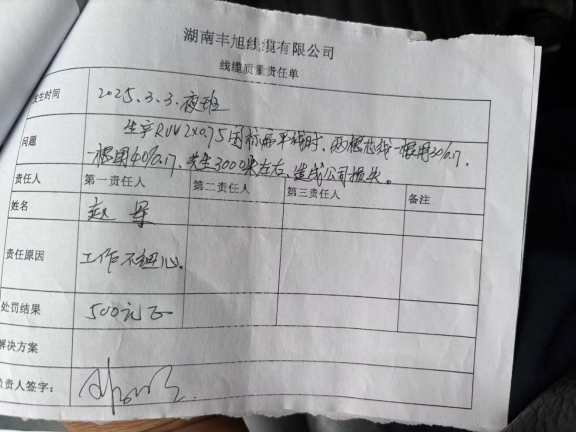 湖南丰旭线缆有限公司
线缆质量责任单
发生时间 2025.3.3.夜班
问题 生产RVV2×0.75国标扁平线时,两根芯线一根用30/0.17,
一根用40/0.17,共生3000米左右,造成公司损失。
责任人 第一责任人 第二责任人 第三责任人 备注
姓名 赵
责任原因 工作不细心.
处罚结果 500元正
解决方案
负责人签字: